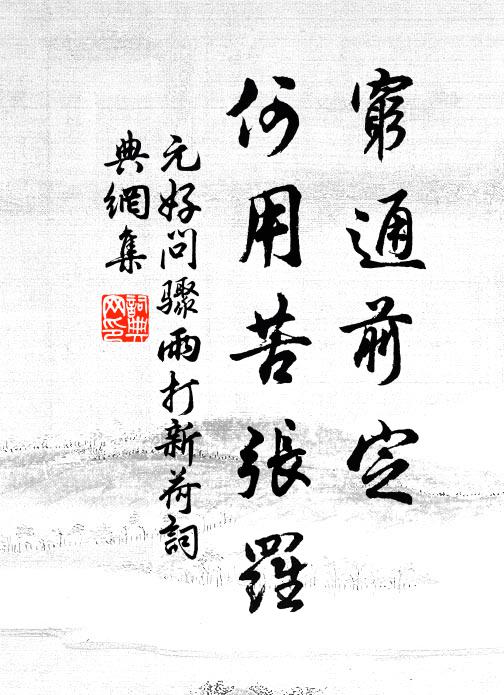 窮通前定
何用苦張羅
元好問驟雨打新荷詞
典網集
詞典網印